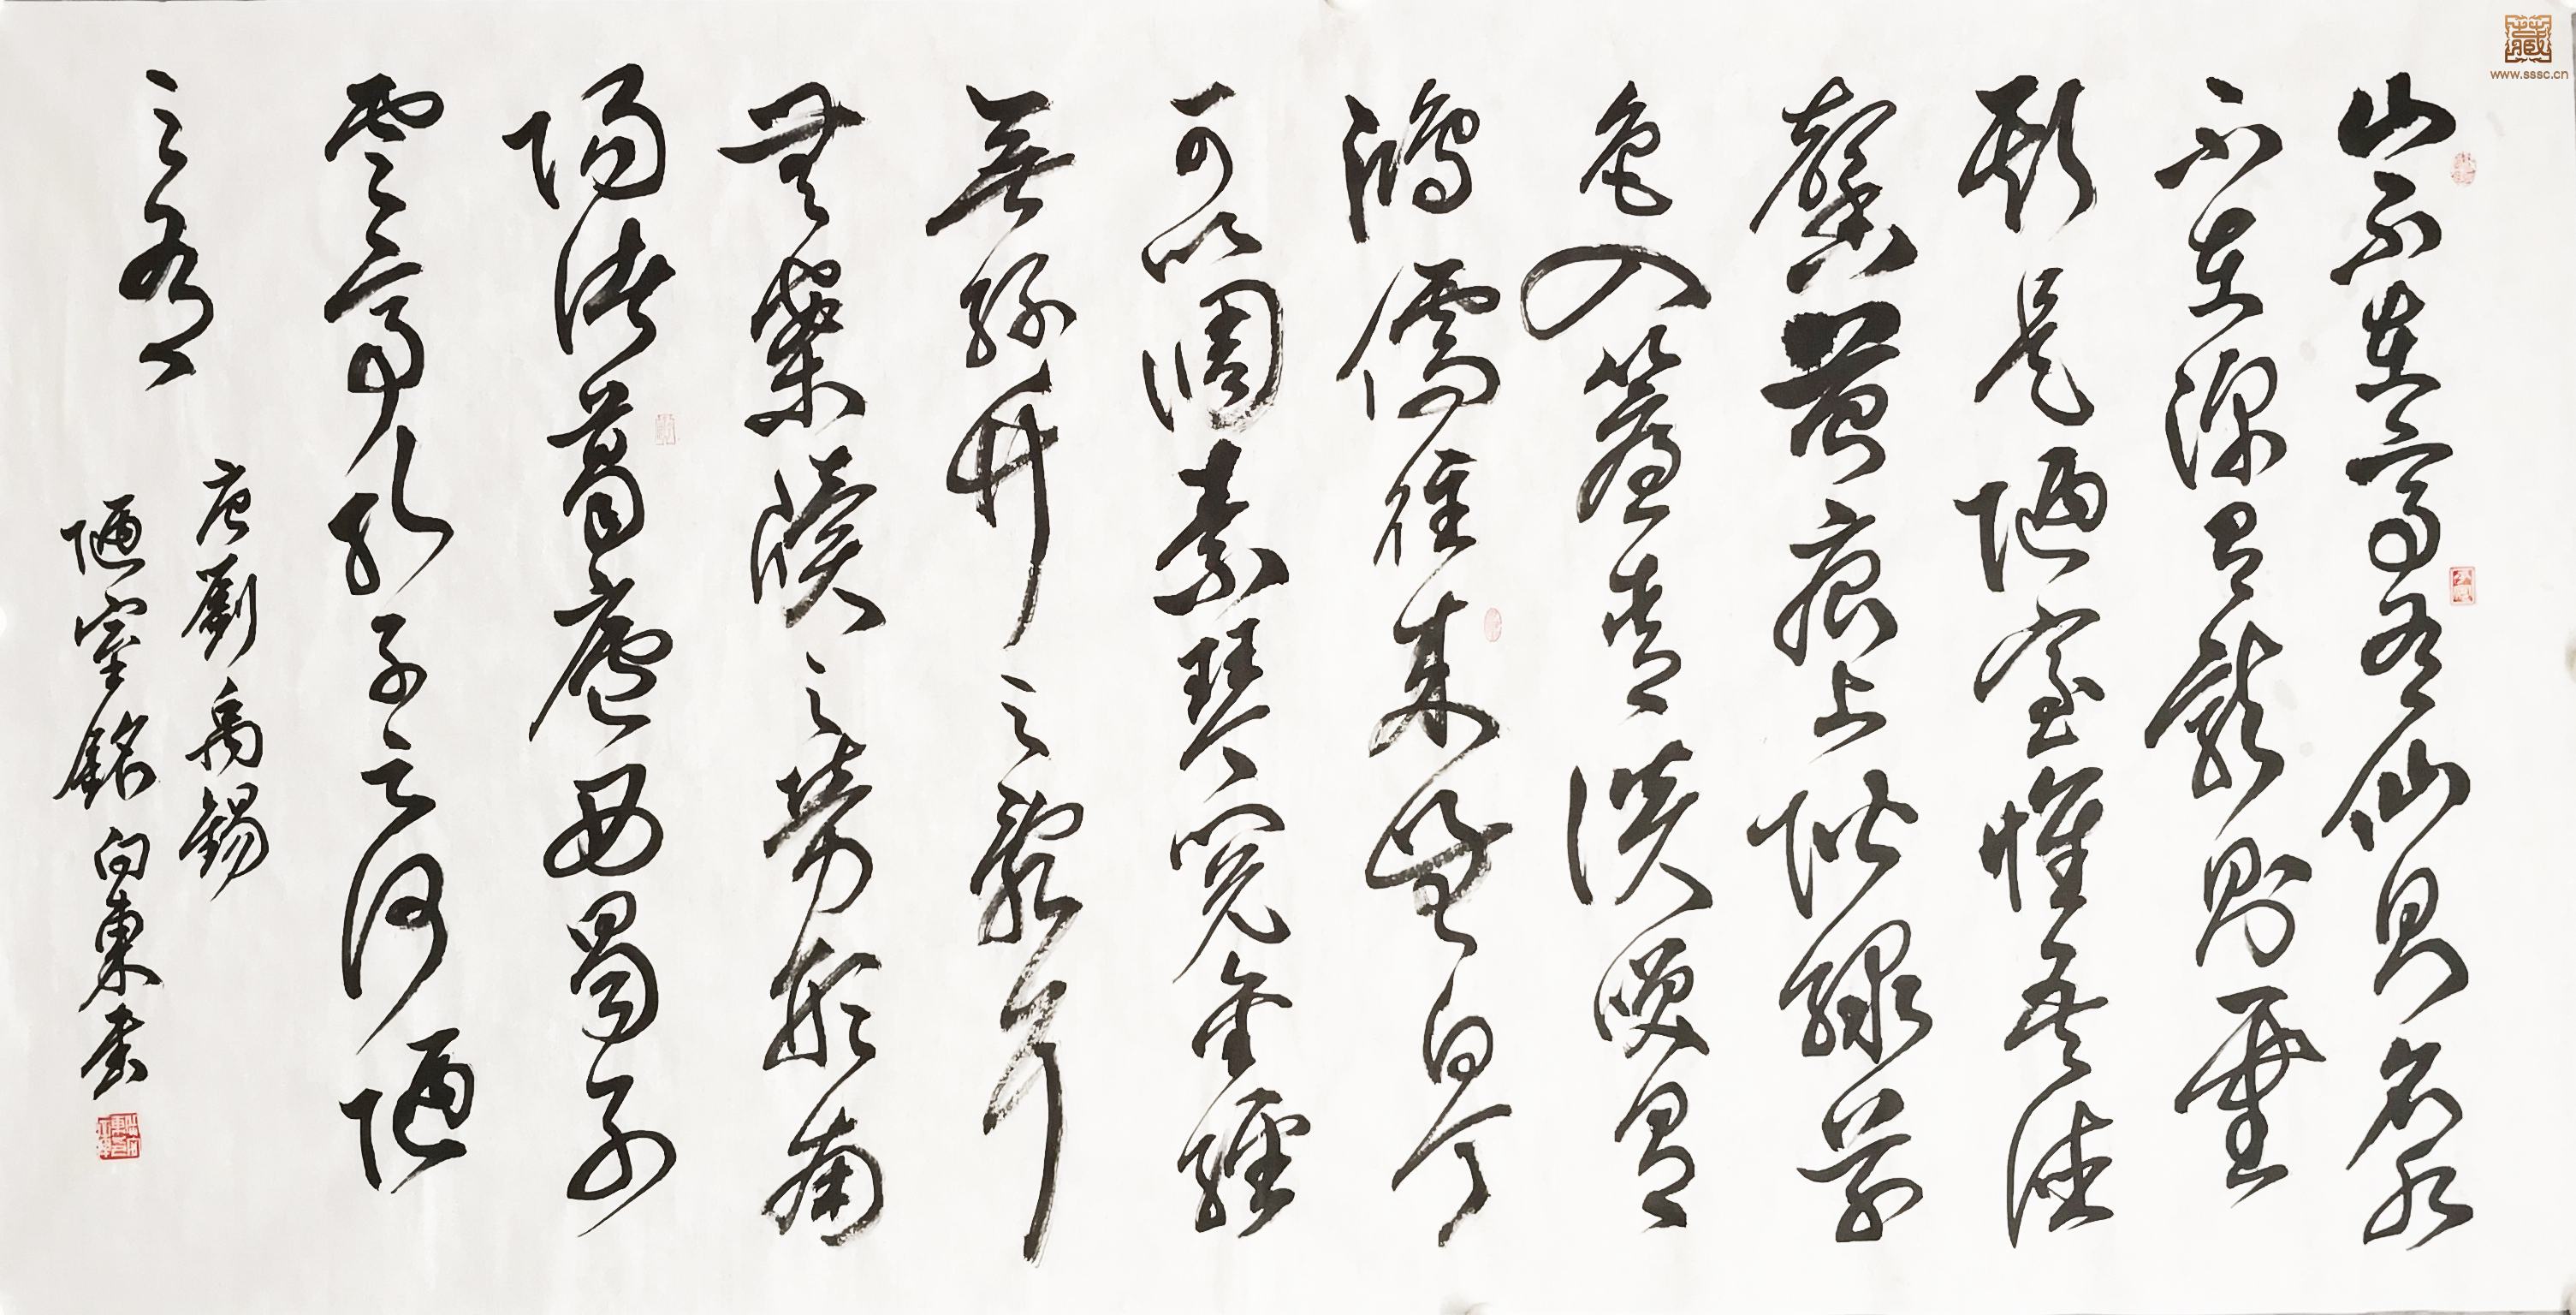 山不在高有仙則名水
不在深有龍則靈
斯是陋室惟吾德
馨苔痕上階綠草
色入簾青談笑有
鴻儒往來無白丁
可以調素琴閱金經
無絲竹之亂耳
無案牘之勞形南
陽諸葛廬西蜀子
雲亭孔子云何陋
之有
唐劉禹錫
陋室銘 向東書
藏
www.sssc.cn